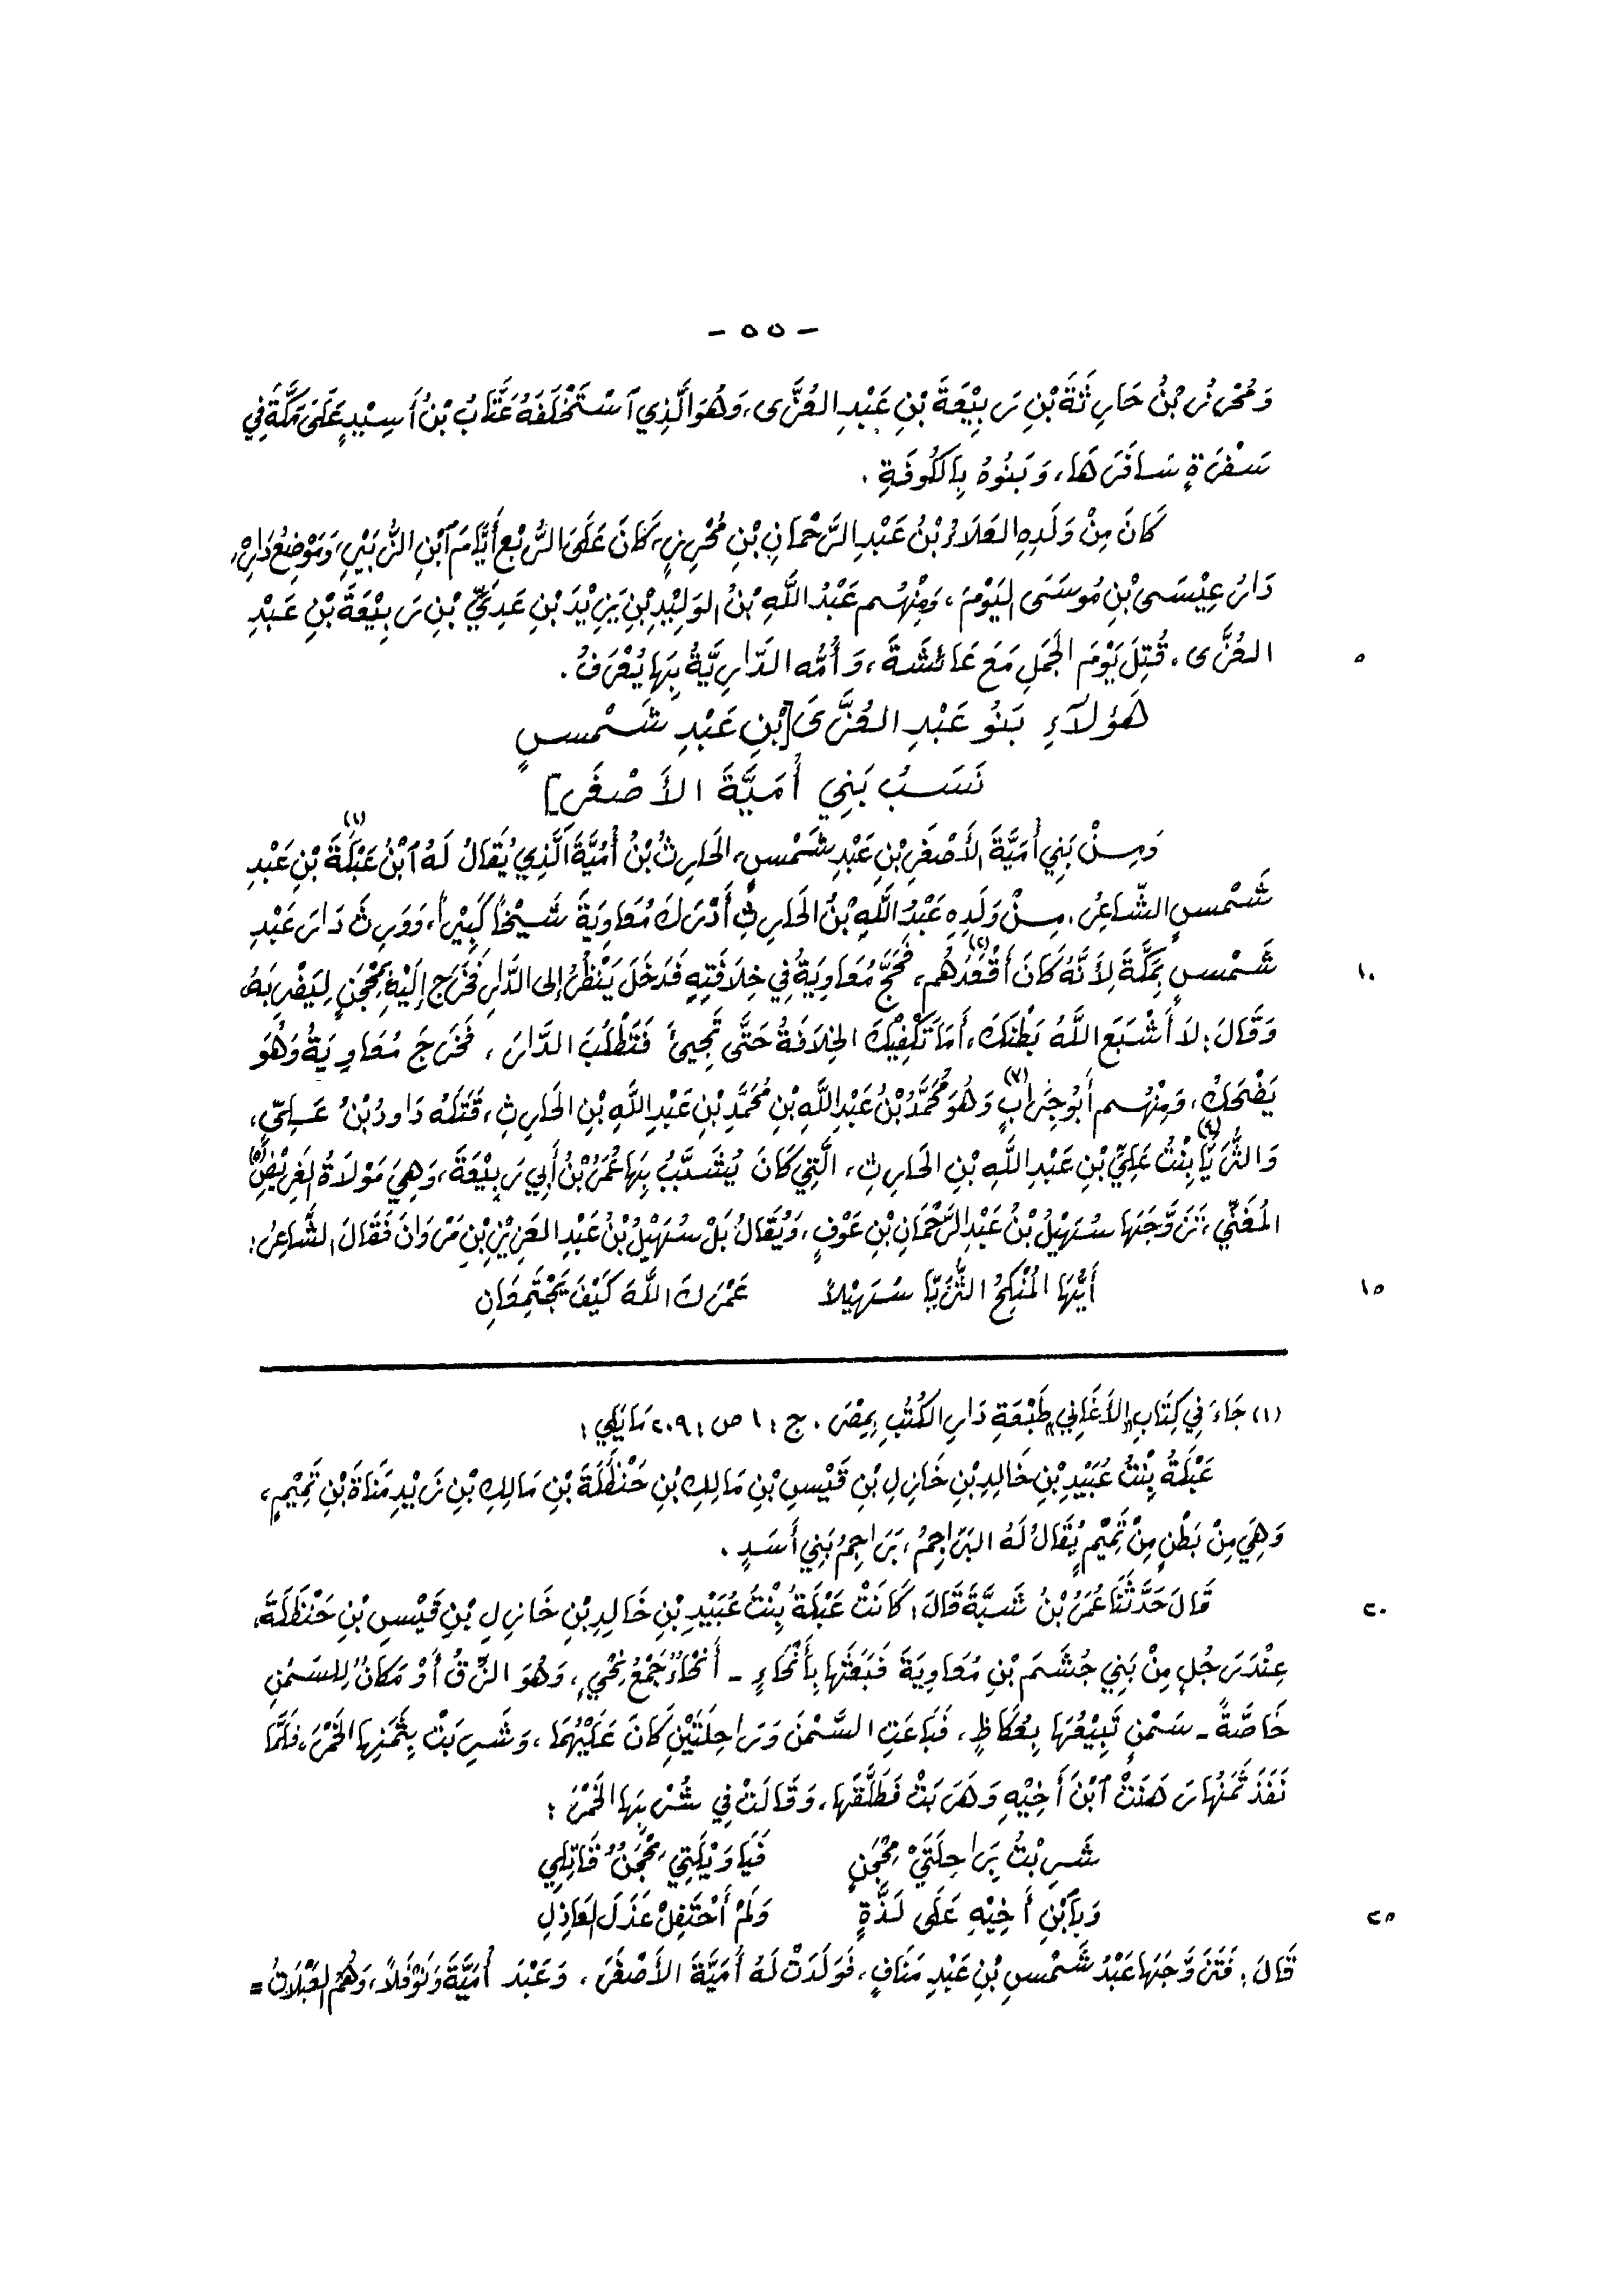 - ٥٥ -
وَمُحْرِزُ بْنُ حَارِثَةَ بْنِ رَبِيْعَةَ بْنِ عَبْدِ العُزَّى، وَهُوَ الَّذِي ٱسْتَخْلَفَهُ عَتَّابُ بْنُ أَسِيْدٍ عَلَى مَكَّةَ فِي
سَفْرَةٍ سَافَرَهَا، وَبَنُوهُ بِالكُوفَةِ.
كَانَ مِنْ وَلَدِهِ العَلَاءُ بْنُ عَبْدِ الرَّحْمَانِ بْنِ مُحْرِزٍ، كَانَ عَلَى الرُّبْعِ أَيَّامَ ٱبْنِ الزُّبَيْرِ، وَمَوْضِعُ دَارِهِ،
دَارُ عِيْسَى بْنِ مُوسَى اليَوْمَ، وَمِنْهُم عَبْدُ اللَّهِ بْنُ الوَلِيْدِ بْنِ يَزِيْدَ بْنِ عَدِيِّ بْنِ رَبِيْعَةَ بْنِ عَبْدِ
العُزَّى، قُتِلَ يَوْمَ الجَمَلِ مَعَ عَائشَةَ، وَأُمُّه الدَّارِيَّةُ بِهَا يُعْرَفُ. ٥
هَؤلَآءِ بَنُو عَبْدِ العُزَّى [بْنِ عَبْدِ شَمْسٍ
نَسَبُ بَنِي أُمَيَّةَ الأَصْغَرِ]
وَمِنْ بَنِي أُمَيَّةَ الأَصْغَرِ بْنِ عَبْدِ شَمْسٍ، الحَارِثُ بْنُ أُمَيَّةَ الَّذِي يُقَالُ لَهُ ٱبْنُ عَبْلَةَ (١) بْنِ عَبْدِ
شَمْسٍ الشَّاعِرُ. مِنْ وَلَدِهِ عَبْدُ اللَّهِ بْنُ الحَارِثِ أَدْرَكَ مُعَاوِيَةَ شَيْخاً كَبِيْراً، وَوَرِثَ دَارَ عَبْدِ
شَمْسٍ بِمَكَّةَ لِأَنَّهُ كَانَ أَقْعَدَهُم (٢)، فَحَجَّ مُعَاوِيَةُ فِي خِلَافَتِهِ فَدَخَلَ يَنْظُرُ إلى الدَّارِ فَخَرَجَ إلَيْهِ بِمِحْجَنٍ لِيَضْرِبَهُ ١٠
وَقَالَ: لَا أَشْبَعَ اللَّهُ بَطْنَكَ، أَمَا تَكْفِيْكَ الخِلَافَةُ حَتَّى تَجِيئَ فَتَطْلُبَ الدَّارَ، فَخَرَجَ مُعَاوِيَةُ وَهُوَ
يَضْحَكُ، وَمِنْهُم أَبُو جِرَابٍ (٣) وَهُوَ مُحَمَّدُ بْنُ عَبْدِ اللَّهِ بْنِ مُحَمَّدِ بْنِ عَبْدِ اللَّهِ بْنِ الحَارِثِ، قَتَلَهُ دَاودُ بْنُ عَلِيٍّ،
وَالثُّرَيَّا (٤) بِنْتُ عَلِيِّ بْنِ عَبْدِ اللَّهِ بْنِ الحَارِثِ، الَّتِي كَانَ يُشَبِّبُ بِهَا عُمَرُ بْنُ أَبِي رَبِيْعَةَ، وَهِيَ مَوْلَاةُ الغَرِيْضِ (٥)
المُغَنِّي، تَزَوَّجَهَا سُهَيْلُ بْنُ عَبْدِ الرَّحْمَانِ بْنِ عَوْفٍ، وَيُقَالُ بَلْ سُهَيْلُ بْنُ عَبْدِ العَزِيْزِ بْنِ مَرْوَانَ فَقَالَ الشَّاعِرُ:
أَيُّهَا المُنْكِحُ الثُّرَيَّا سُهَيْلاً عَمْرَكَ اللَّهَ كَيْفَ يَجْتَمِعَانِ ١٥
(١) جَاءَ فِي كِتَابِ «الأَغَانِي» طَبْعَةِ دَارِ الكُتُبِ بِمِصْرَ. ج: ١ ص: ٢٠٩ مَا يَلِي:
عَبْلَةُ بِنْتُ عُبَيْدِ بْنِ خَالِدِ بْنِ خَازِلِ بْنِ قَيْسِ بْنِ مَالِكِ بْنِ حَنْظَلَةَ بْنِ مَالِكِ بْنِ زَيْدِ مَنَاةَ بْنِ تَمِيْمٍ،
وَهِيَ مِنْ بَطْنٍ مِنْ تَمِيْمٍ يُقَالُ لَهُ البَرَاجِمُ، بَرَاجِمُ بَنِي أَسَدٍ.
قَالَ حَدَّثَنَا عُمَرُ بْنُ شَبَّةَ قَالَ: كَانَتْ عَبْلَةُ بِنْتُ عُبَيْدِ بْنِ خَالِدِ بْنِ خَازِلِ بْنِ قَيْسِ بْنِ حَنْظَلَةَ، ٢٠
عِنْدَ رَجُلٍ مِنْ بَنِي جُشَمَ بْنِ مُعَاوِيَةَ فَبَعَثَهَا بِأَنْحَاءٍ - أَنْحَاءٌ جَمْعُ نِحْيٍ، وَهُوَ الزِّقُ أَوْ مَكَانٌ لِلسَّمْنِ
خَاصَّةً - سَمْنٍ تَبِيْعُهَا بِعُكَاظٍ، فَبَاعَتِ السَّمْنَ وَرَاحِلَتَيْنِ كَانَ عَلَيْهُمَا، وَشَرِبَتْ بِثَمَنِهَا الخَمْرَ، فَلَمَّا
نَفَذَ ثَمَنُهَا رَهَنَتْ ٱبْنَ أَخِيْهِ وَهَرَبَتْ فَطَلَّقَهَا، وَقَالَتْ فِي شُرْبِهَا الخَمْرَ:
شَرِبْتُ بِرَاحِلَتَيْ مِحْجَنٍ فَيَا وَيْلَتِي مِحْجَنٌ قَاتِلِي
وَبِٱبْنِ أَخِيْهِ عَلَى لَذَّةٍ وَلَمْ أَحْتَفِلْ عَذَلَ العَاذِلِ ٢٥
قَالَ: فَتَزَوَّجَهَا عَبْدُ شَمْسِ بْنِ عَبْدِ مَنَافٍ، فَوَلَدَتْ لَهُ أُمَيَّةَ الأَصْغَرَ، وَعَبْدَ أُمَيَّةَ وَنَوْفَلاً، وَهُمُ العَبْلَاتُ =